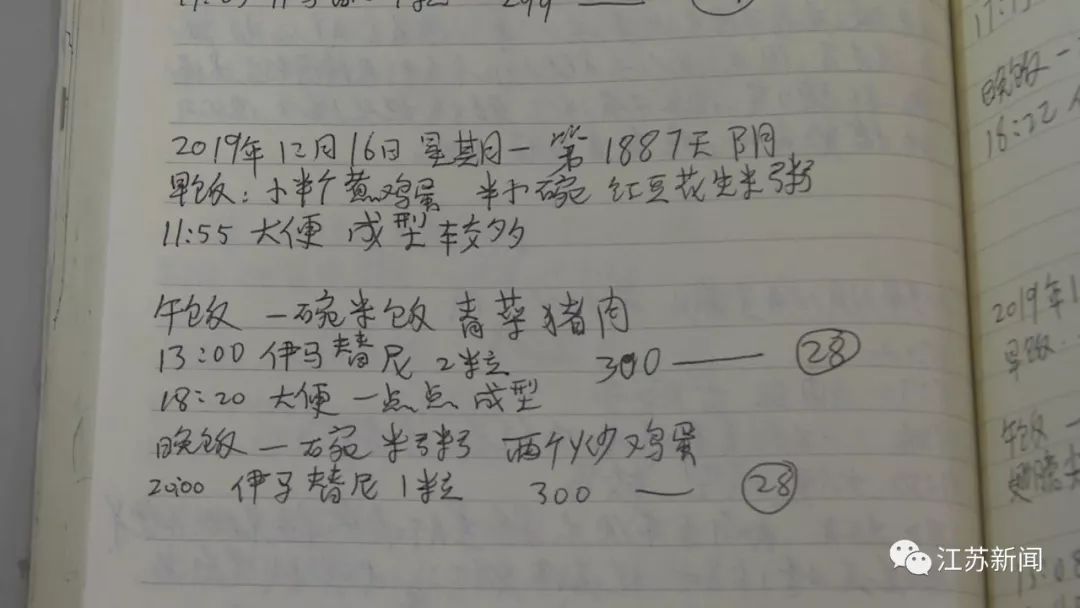 299
2019年12月16日 星期一 第1887天 阴
早饭：小半个煮鸡蛋 半小碗 红豆花生米粥
11:55 大便 成型 较多
午饭 一碗米饭 青菜猪肉
13:00 伊马替尼 2粒 300 —— 28
18:20 大便 一点点 成型
晚饭 一碗 米粥 两个炒鸡蛋
20:00 伊马替尼 1粒 300 — 28
晚饭一
18:22
2019年1
早饭
午饭 一
江苏新闻